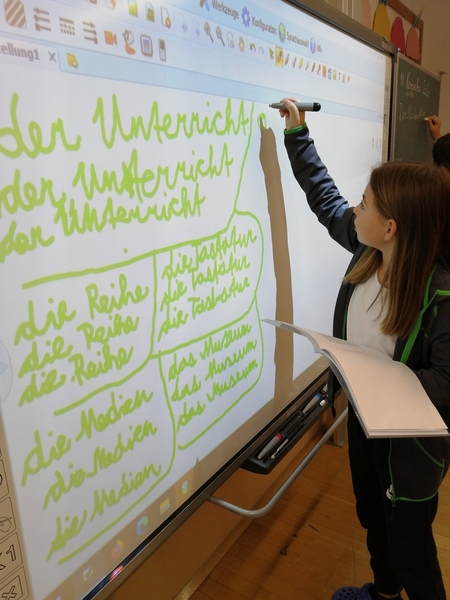 Werkzeuge Konfiguration Sprachauswahl Info
tellung1 X
der Unterricht
der Unterricht
der Unterricht
die Reihe
die Reihe
die Reihe
die Tastatur
die Tastatur
die Tastatur
die Medien
die Medien
die Medien
das Museum
das Museum
das Museum